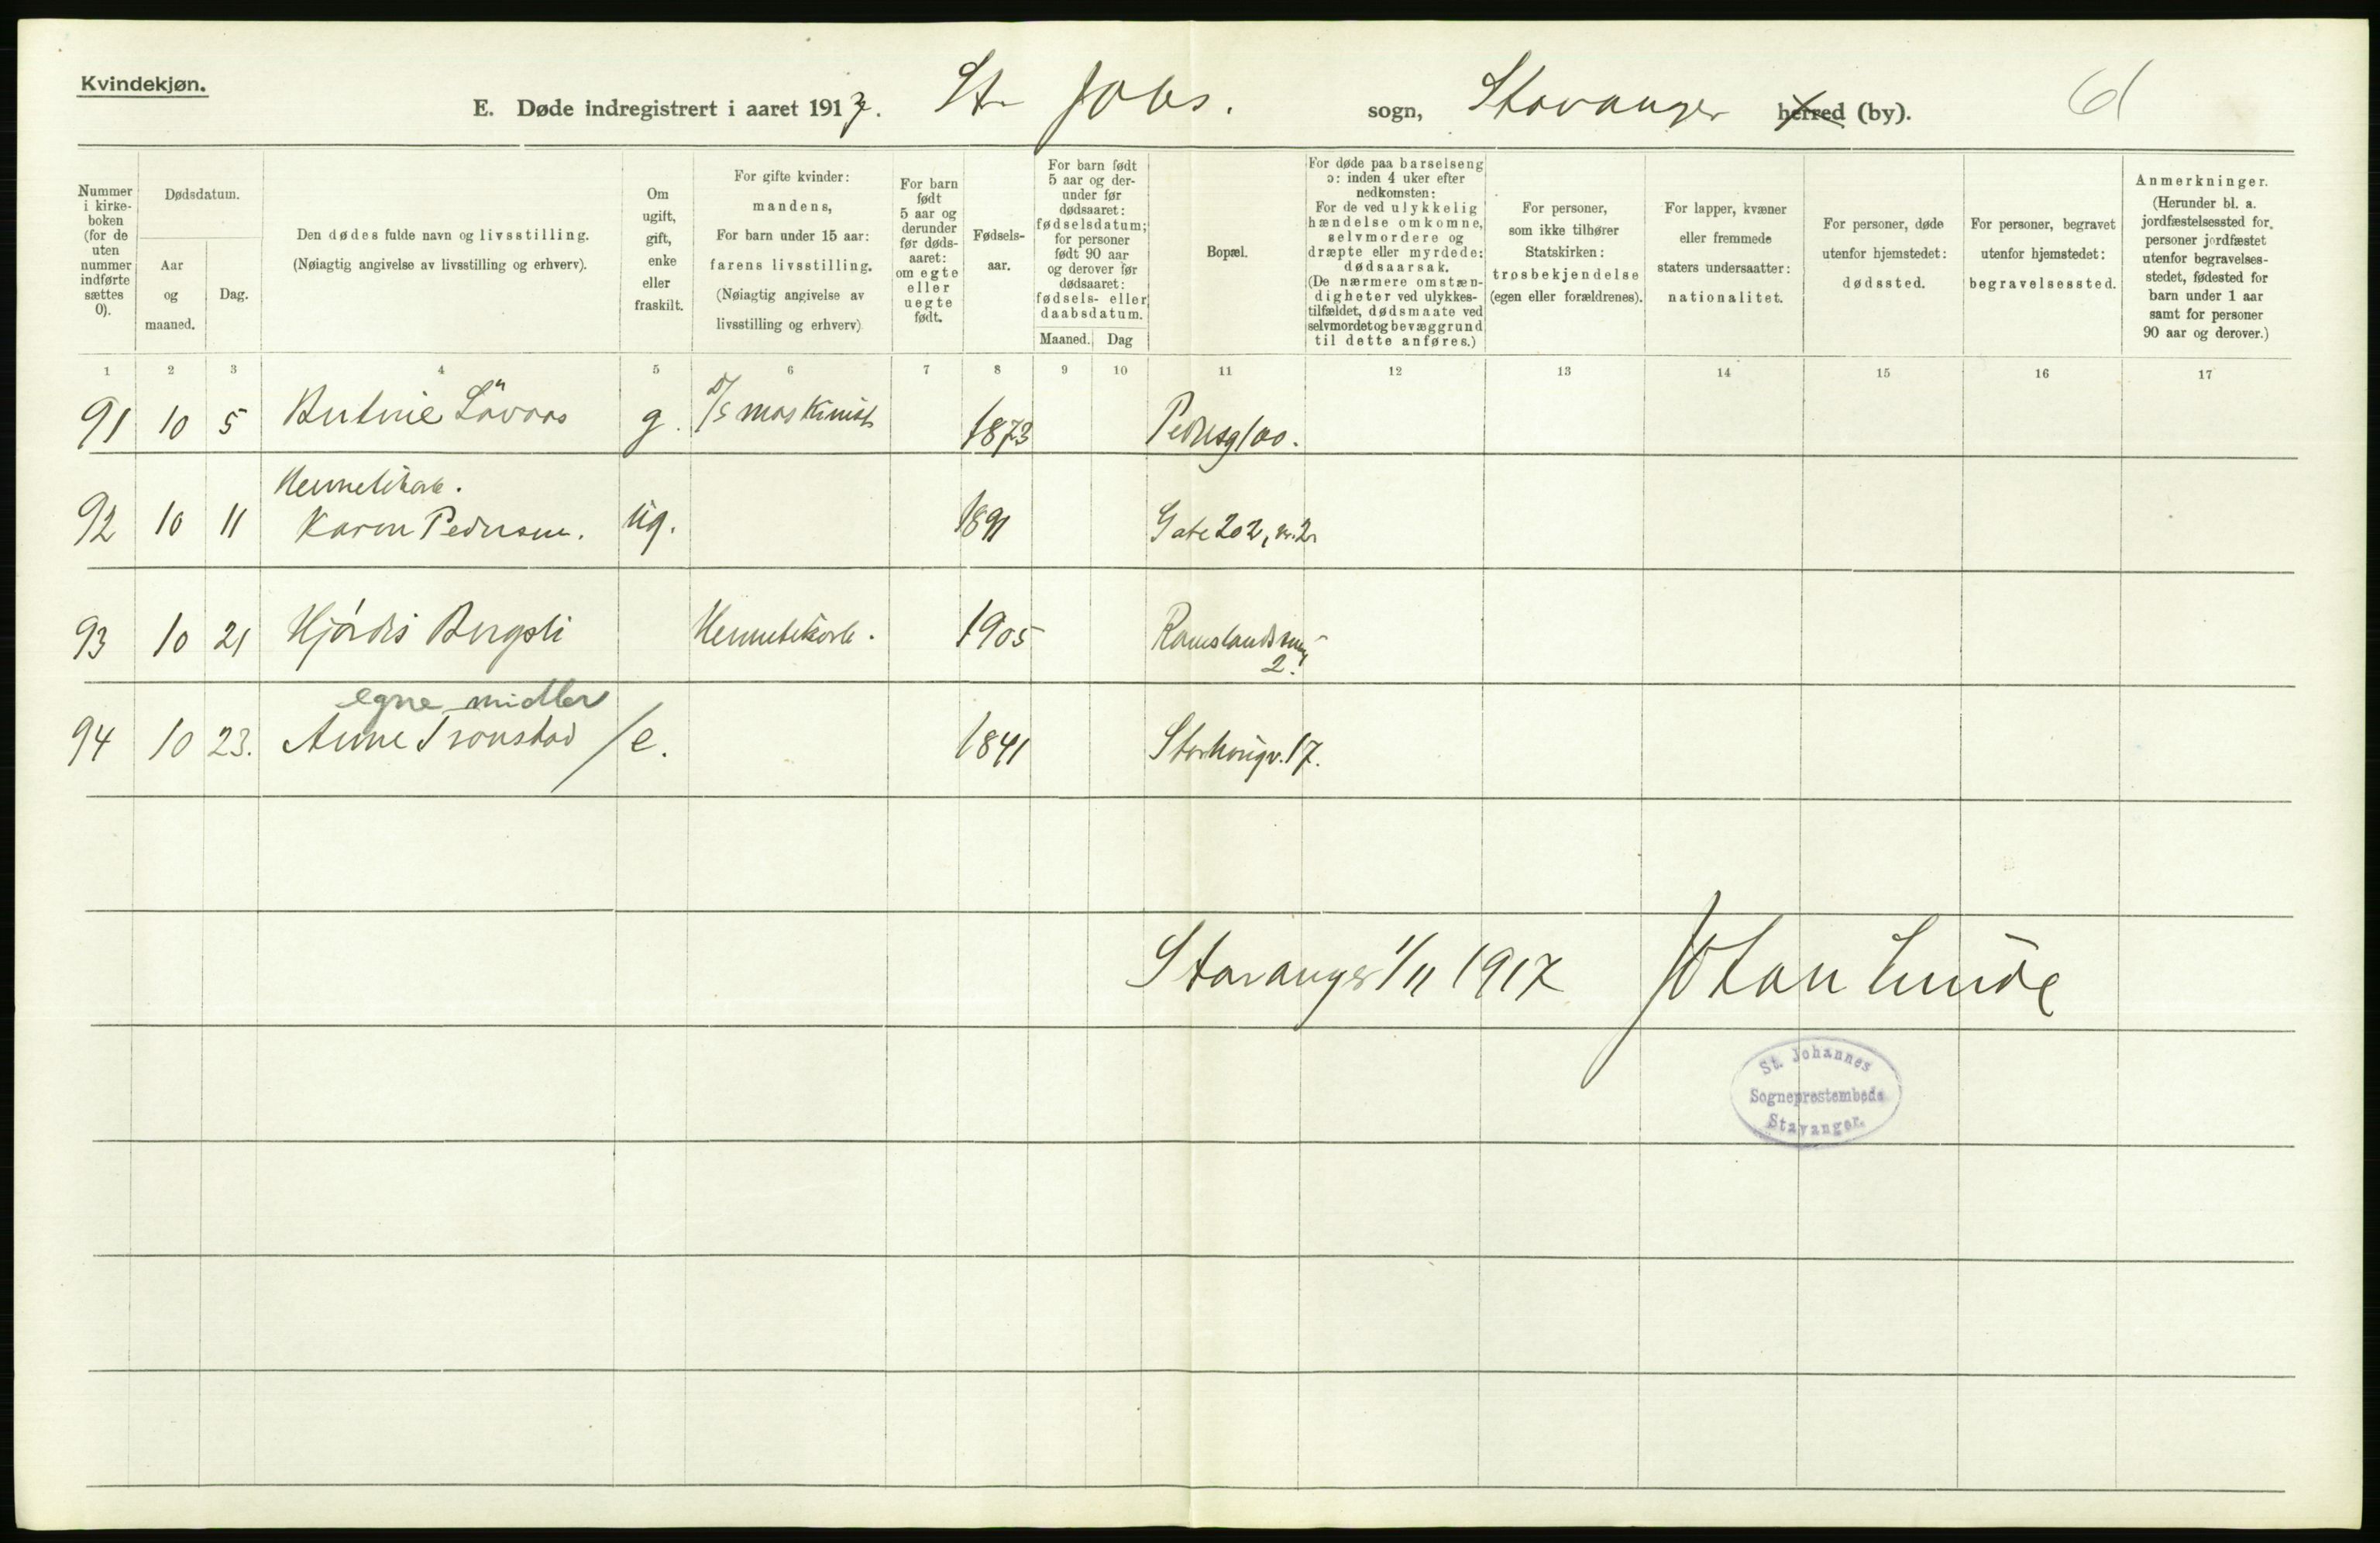 Kvindekjøn.
E. Døde indregistrert i aaret 1917. St. Johs. sogn, Stavanger herred (by). 6
Nummer i kirkeboken (for de uten nummer indførte sættes 0).
Dødsdatum.
Aar og maaned.
Dag.
Den dødes fulde navn og livsstilling.
(Nøiagtig angivelse av livsstilling og erhverv).
Om ugift, gift, enke eller fraskilt.
For gifte kvinder: mandens,
For barn under 15 aar: farens livsstilling.
(Nøiagtig angivelse av livsstilling og erhverv)
For barn født 5 aar og derunder før dødsaaret: om egte eller uegte født.
Fødselsaar.
For barn født 5 aar og derunder før dødsaaret: fødselsdatum; for personer født 90 aar og derover før dødsaaret: fødsels- eller daabsdatum.
Maaned. Dag
Bopæl.
For døde paa barselseng ɔ: inden 4 uker efter nedkomsten:
For de ved ulykkelig hændelse omkomne, selvmordere og dræpte eller myrdede: dødsaarsak.
(De nærmere omstændigheter ved ulykkestilfældet, dødsmaate ved selvmordet og bevæggrund til dette anføres.)
For personer, som ikke tilhører Statskirken: trosbekjendelse (egen eller forældrenes).
For lapper, kvæner eller fremmede staters undersaatter: nationalitet.
For personer, døde utenfor hjemstedet: dødssted.
For personer, begravet utenfor hjemstedet: begravelsessted.
Anmerkninger.
(Herunder bl. a. jordfæstelsessted for personer jordfæstet utenfor begravelsesstedet, fødested for barn under 1 aar samt for personer 90 aar og derover.)
1 2 3 4 5 6 7 8 9 10 11 12 13 14 15 16 17
91 10 5 Bertine Lövaas g. D/S maskinist 1873 Pedersg 100.
Hermetikarb.
92 10 11 Karen Pedersen. ug. 1891 Gate 202, nr. 2
93 10 21 Hjördis Bergsli Hermetikarb. 1905
2.
egne midler
94 10 23. Anne Tronstad / e. 1841 Storhaugv. 17.
Stavanger 1/11 1917 Johan Lunde
St. Johannes
Sogneprestembede
Stavanger.